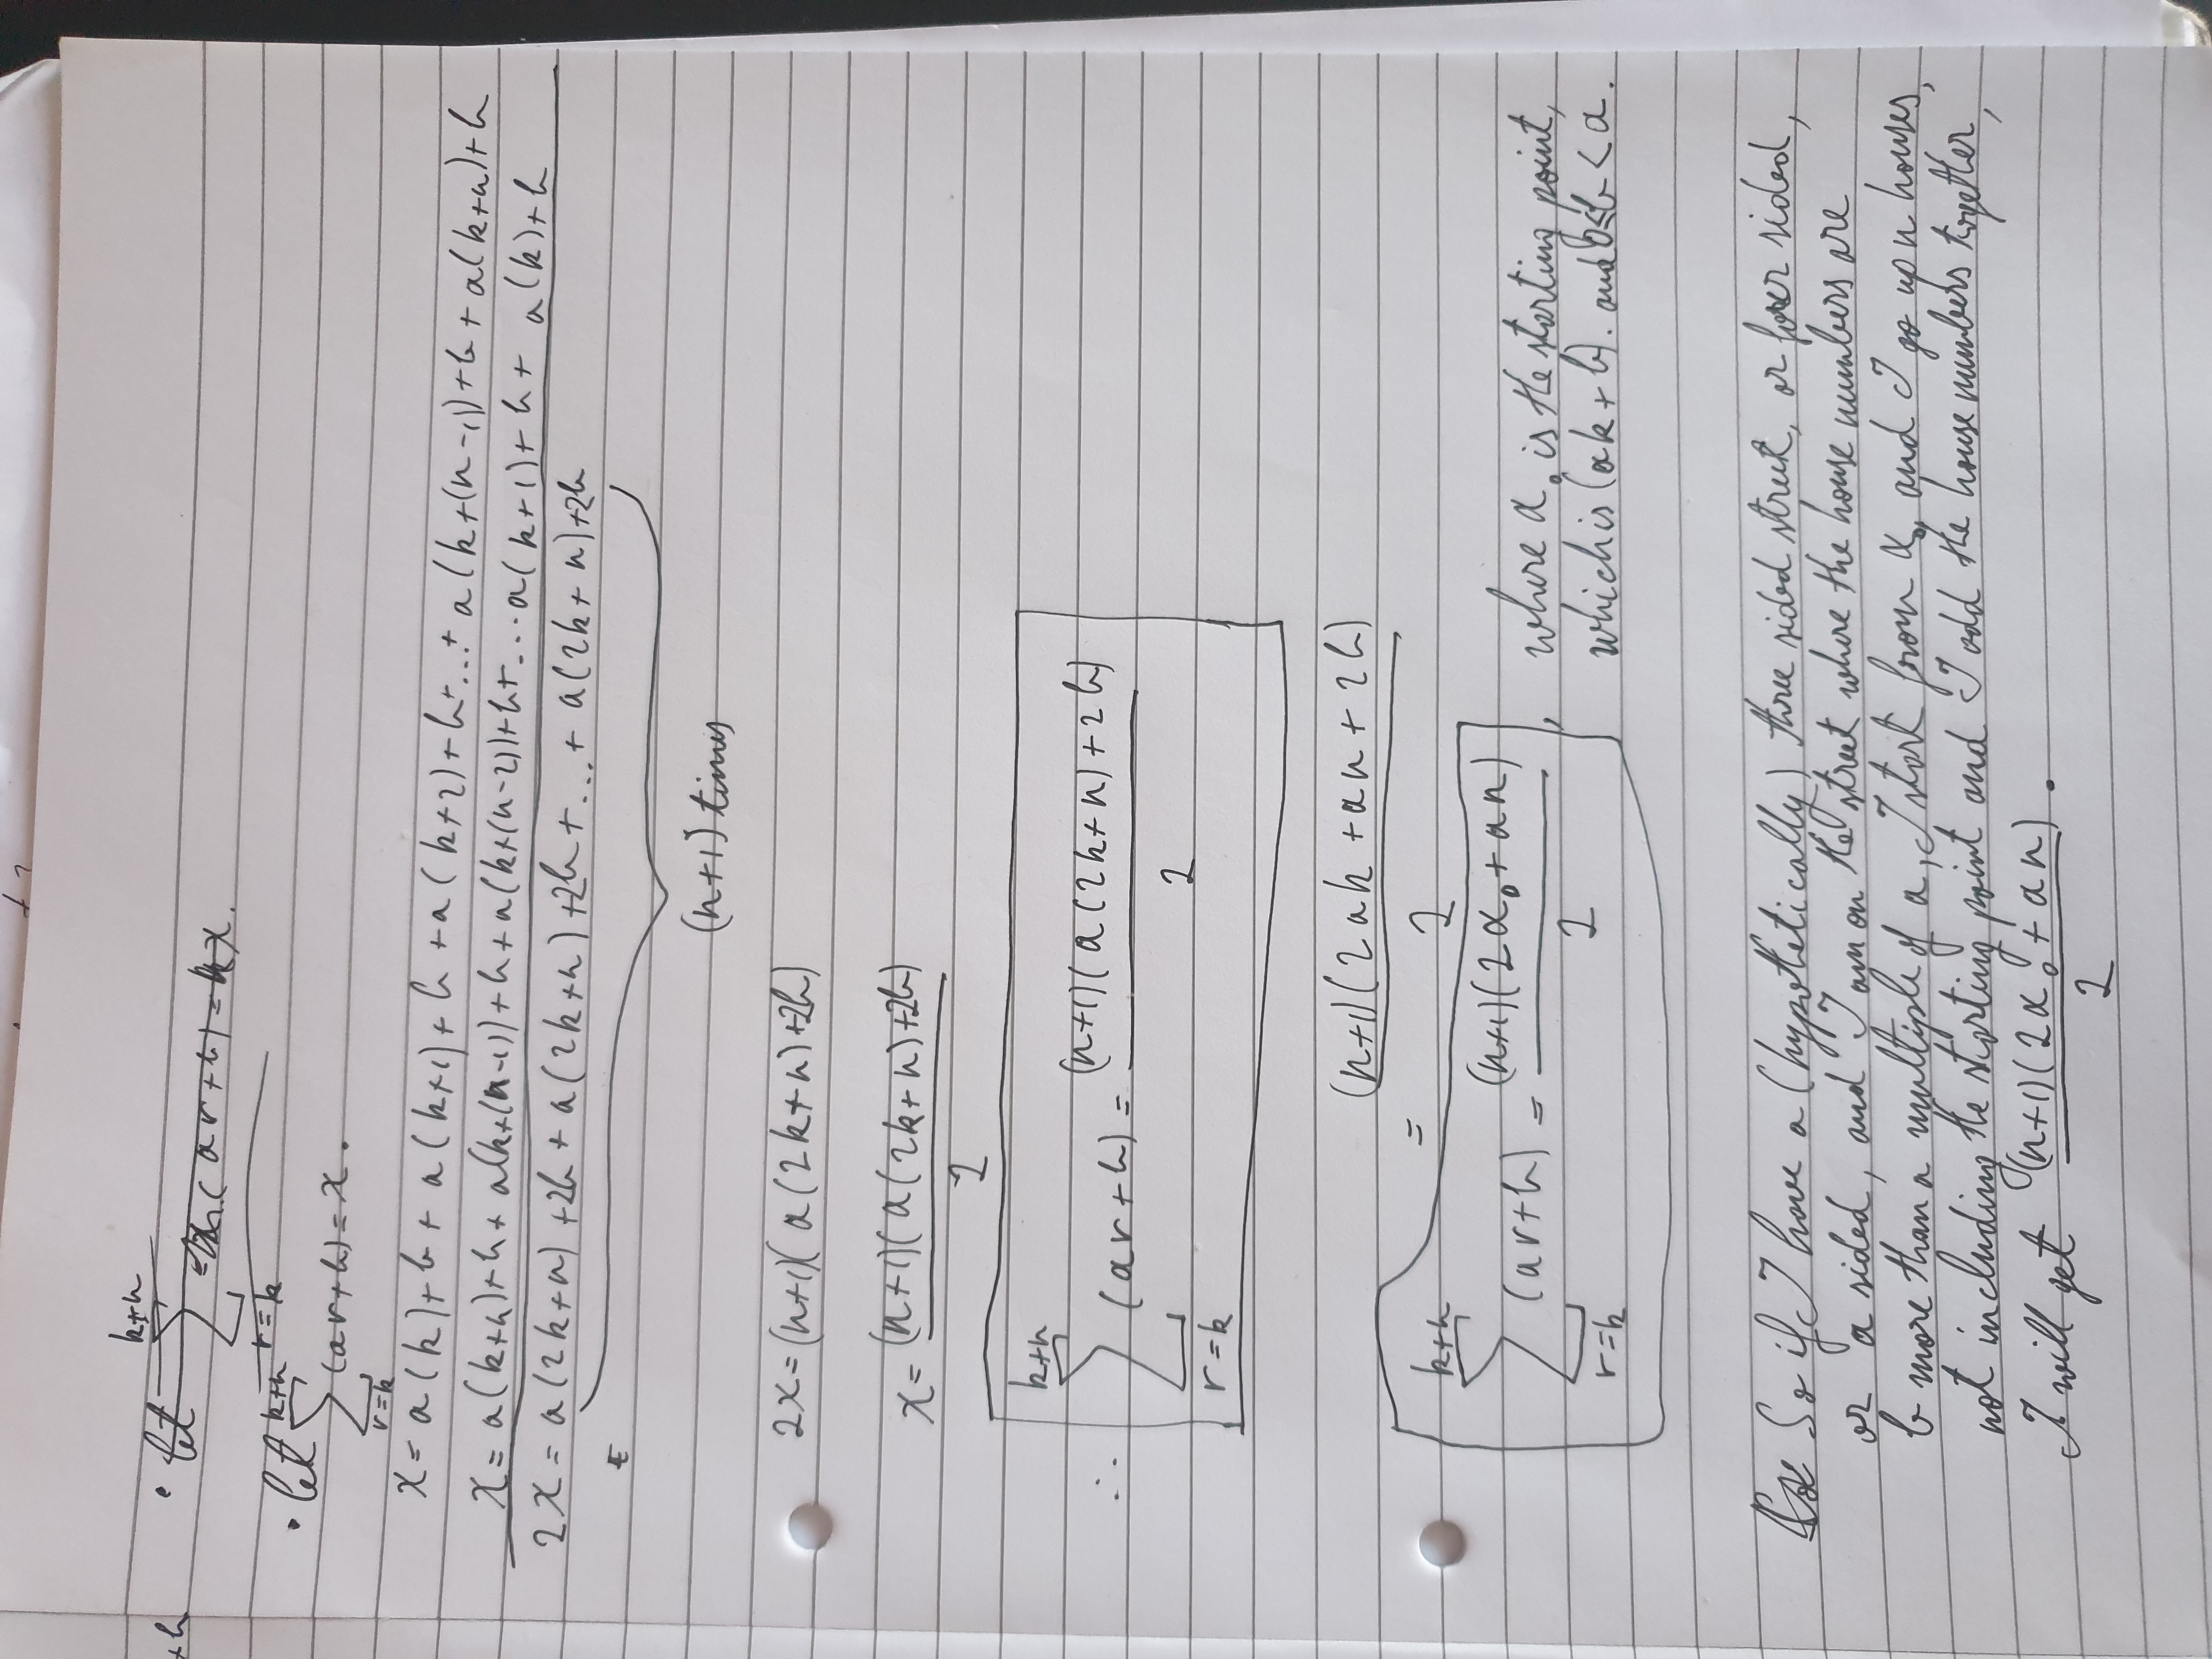 +b
• let \sum_{r=k}^{k+n} (ar+b) = x.
• let \sum_{r=k}^{k+n} (ar+b) = x.
x = a(k)+b + a(k+1)+b + a(k+2)+b+...+ a(k+(n-1))+b + a(k+n)+b
x = a(k+n)+b + a(k+(n-1))+b + a(k+(n-2))+b+... a(k+1)+b + a(k)+b
2x = a(2k+n)+2b + a(2k+n)+2b+...+ a(2k+n)+2b
(n+1) times
2x = (n+1)(a(2k+n)+2b)
x = (n+1)(a(2k+n)+2b)
2
∴ \sum_{r=k}^{k+n} (ar+b) = (n+1)(a(2k+n)+2b)
2
= (n+1)(2ak+an+2b)
2
\sum_{r=k}^{k+n} (ar+b) = (n+1)(2x₀+an)
2
, where x₀ is the starting point,
which is (ak+b). and 0≤b<a.
So if I have a (hypothetically) three sided street, or four sided,
or a sided, and if I am on the street where the house numbers are
b more than a multiple of a, I start from x₀ and I go up n houses,
not including the starting point and I add the house numbers together,
I will get (n+1)(2x₀+an)
2
.